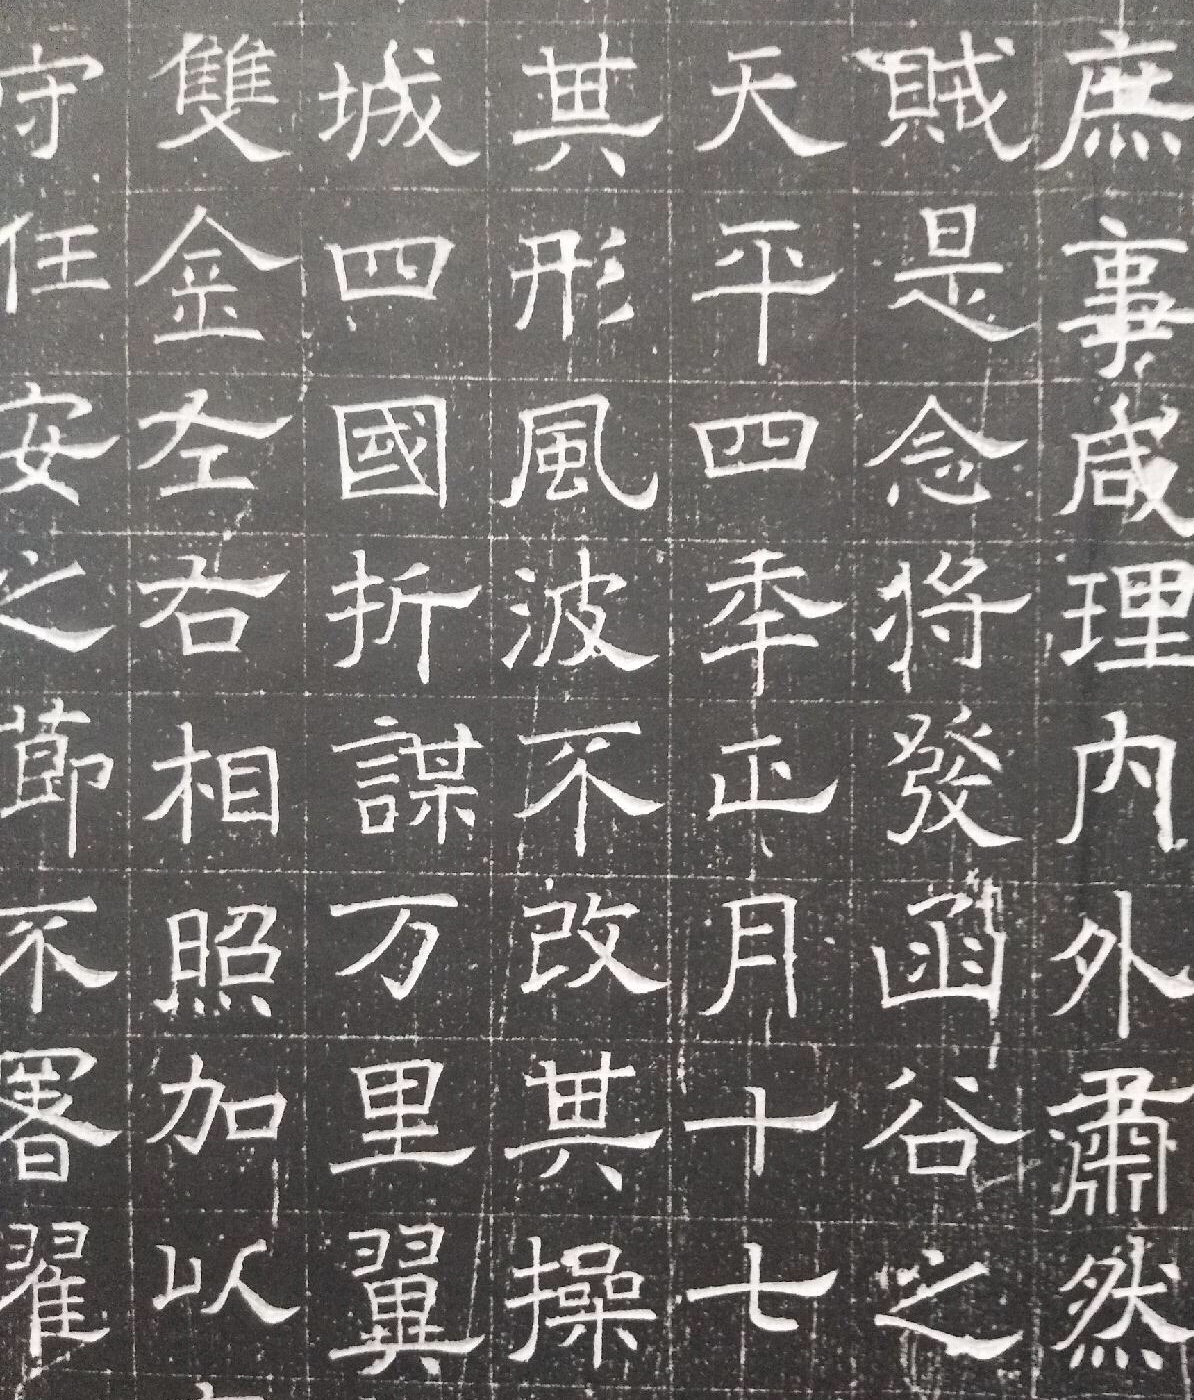 庶事咸理内外肅然
賊是念将發函谷之
天平四年正月十七
其形風波不改其操
城四國折謀万里翼
雙金左右相照加以
守任安之節不署翟